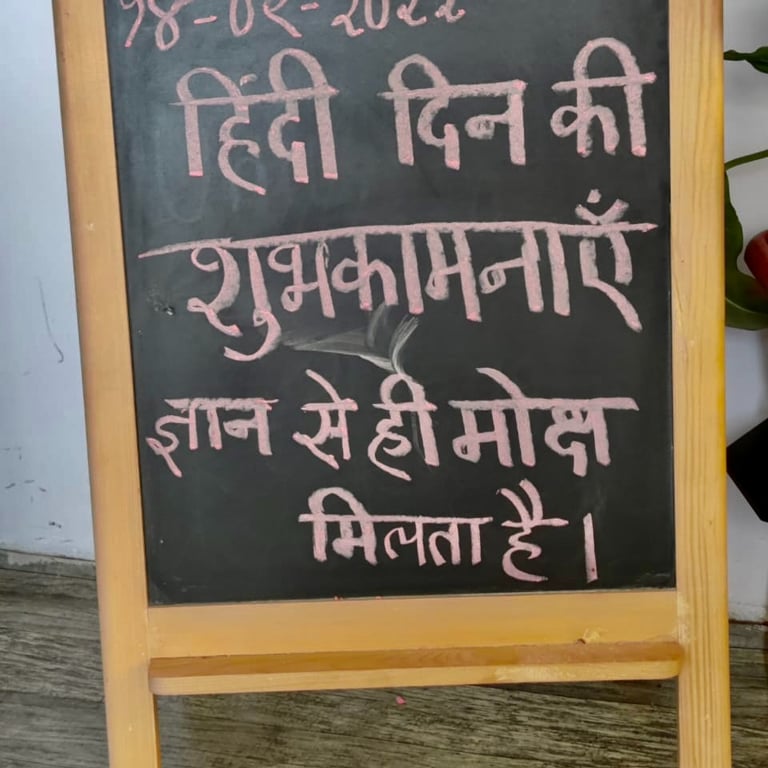 १४-०९-२०२२
हिंदी दिन की
शुभकामनाएँ
ज्ञान से ही मोक्ष
मिलता है।